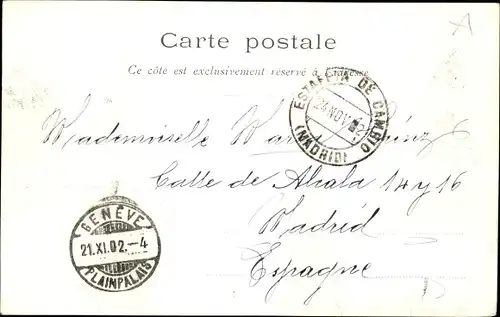 Carte postale
Ce côté est exclusivement réservé à l'adresse
ESTAFETA DE CAMBIO
24 NOV 02
(MADRID)
Mademoiselle
Calle de Alcala 14 y 16
Madrid
Espagne
GENÈVE
21.XI.02.-4
PLAINPALAIS